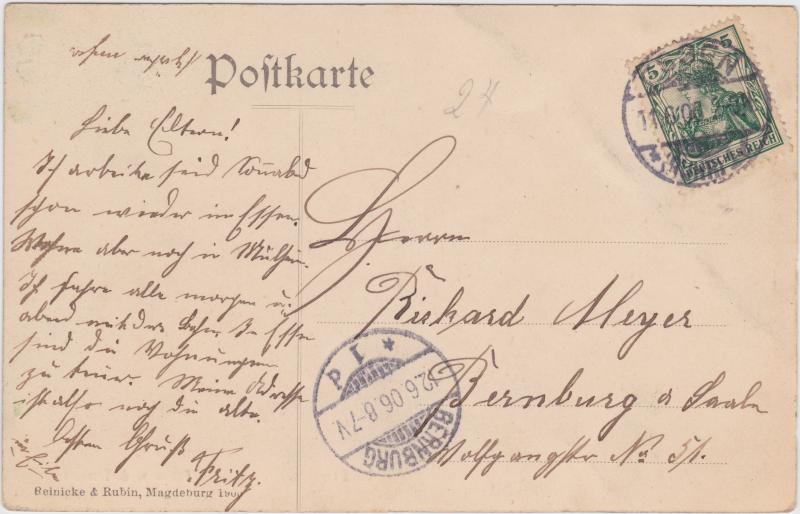 Postkarte
27
Liebe Eltern!
Ich arbeite seid Sonnabd
schon wieder in Essen.
Wohne aber noch in Mülheim.
Ich fahre alle morgen u.
abend mit der Bahn. In Essen
sind die Wohnungen
zu teuer. Meine Adresse
ist also noch die alte.
Besten Gruß
Fritz.
in Eile
Herrn
Richard Meyer
Bernburg a Saale
Wolfgangstr No 51.
5 5
DEUTSCHES REICH
BERNBURG
12.6.06.8-7V.
Reinicke & Rubin, Magdeburg